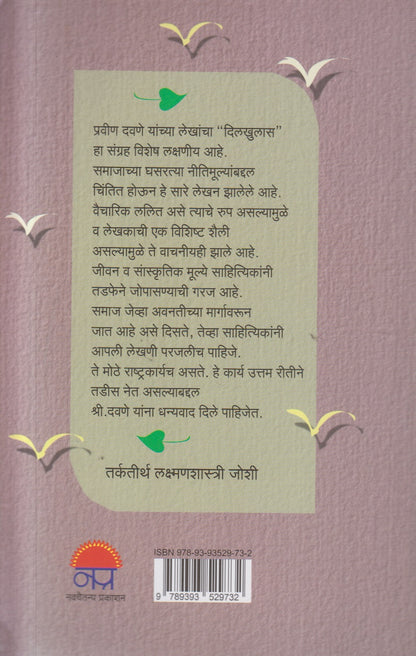 प्रवीण दवणे यांच्या लेखांचा "दिलखुलास"
हा संग्रह विशेष लक्षणीय आहे.
समाजाच्या घसरत्या नीतिमूल्यांबद्दल
चिंतित होऊन हे सारे लेखन झालेले आहे.
वैचारिक ललित असे त्याचे रुप असल्यामुळे
व लेखकाची एक विशिष्ट शैली
असल्यामुळे ते वाचनीयही झाले आहे.
जीवन व सांस्कृतिक मूल्ये साहित्यिकांनी
तडफेने जोपासण्याची गरज आहे.
समाज जेव्हा अवनतीच्या मार्गावरून
जात आहे असे दिसते, तेव्हा साहित्यिकांनी
आपली लेखणी परजलीच पाहिजे.
ते मोठे राष्ट्रकार्यच असते. हे कार्य उत्तम रीतीने
तडीस नेत असल्याबद्दल
श्री.दवणे यांना धन्यवाद दिले पाहिजेत.
तर्कतीर्थ लक्ष्मणशास्त्री जोशी
ISBN 978-93-93529-73-2
9 789393 529732
नप्र
नवचैतन्य प्रकाशन